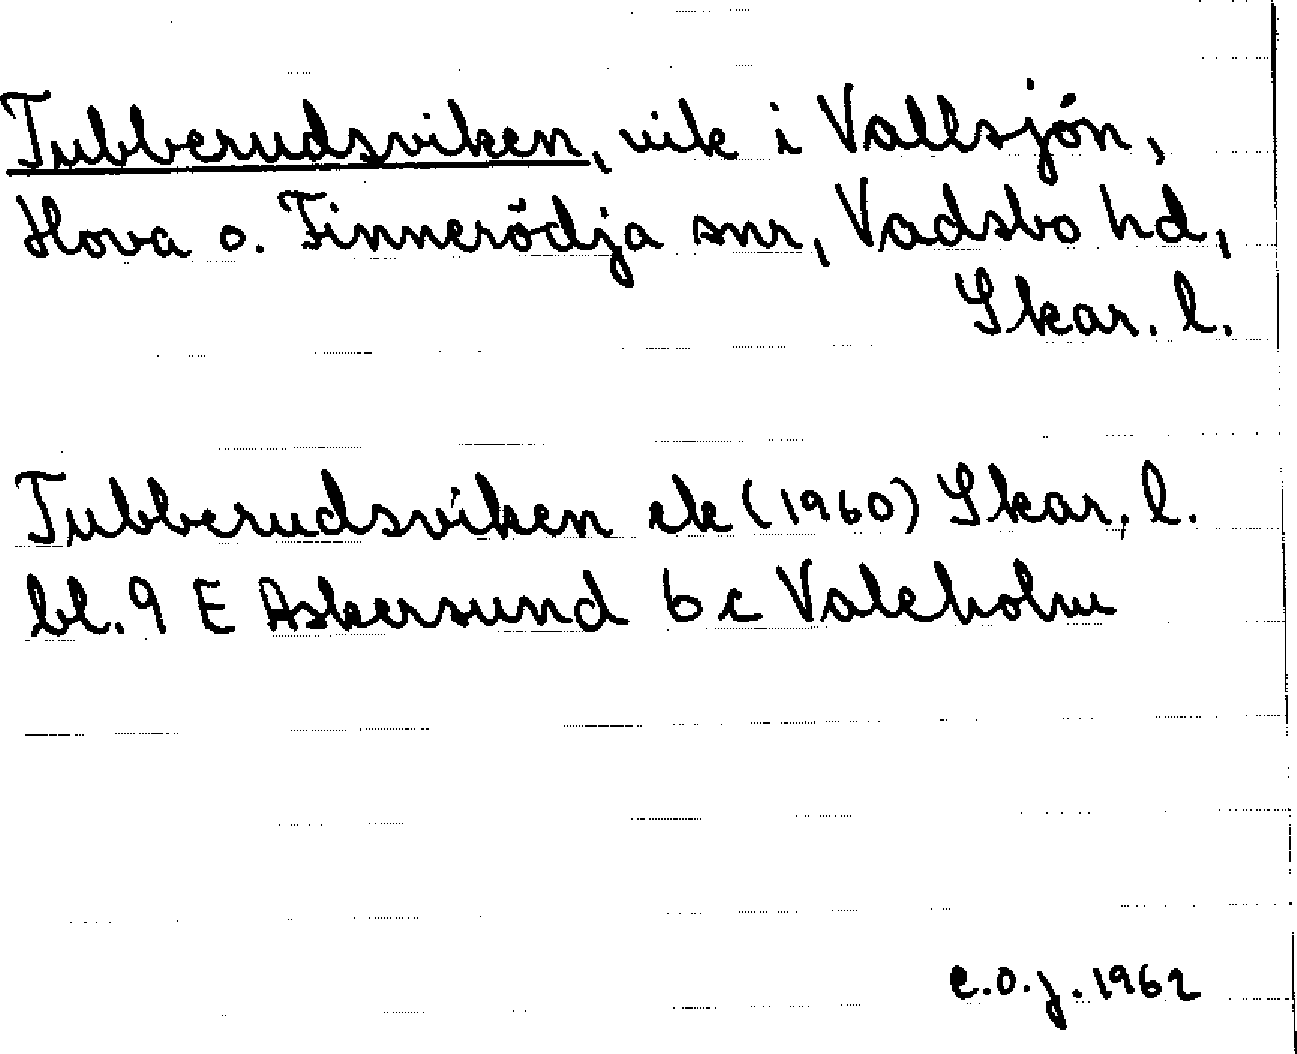 Tubberudsviken, vik i Vallsjön,
Hova o. Finnerödja snr, Vadsbo hd,
Skar. l.
Tubberudsviken ek (1960) Skar. l.
bl. 9 E Askersund 6 c Valeholm
C.O.J. 1962